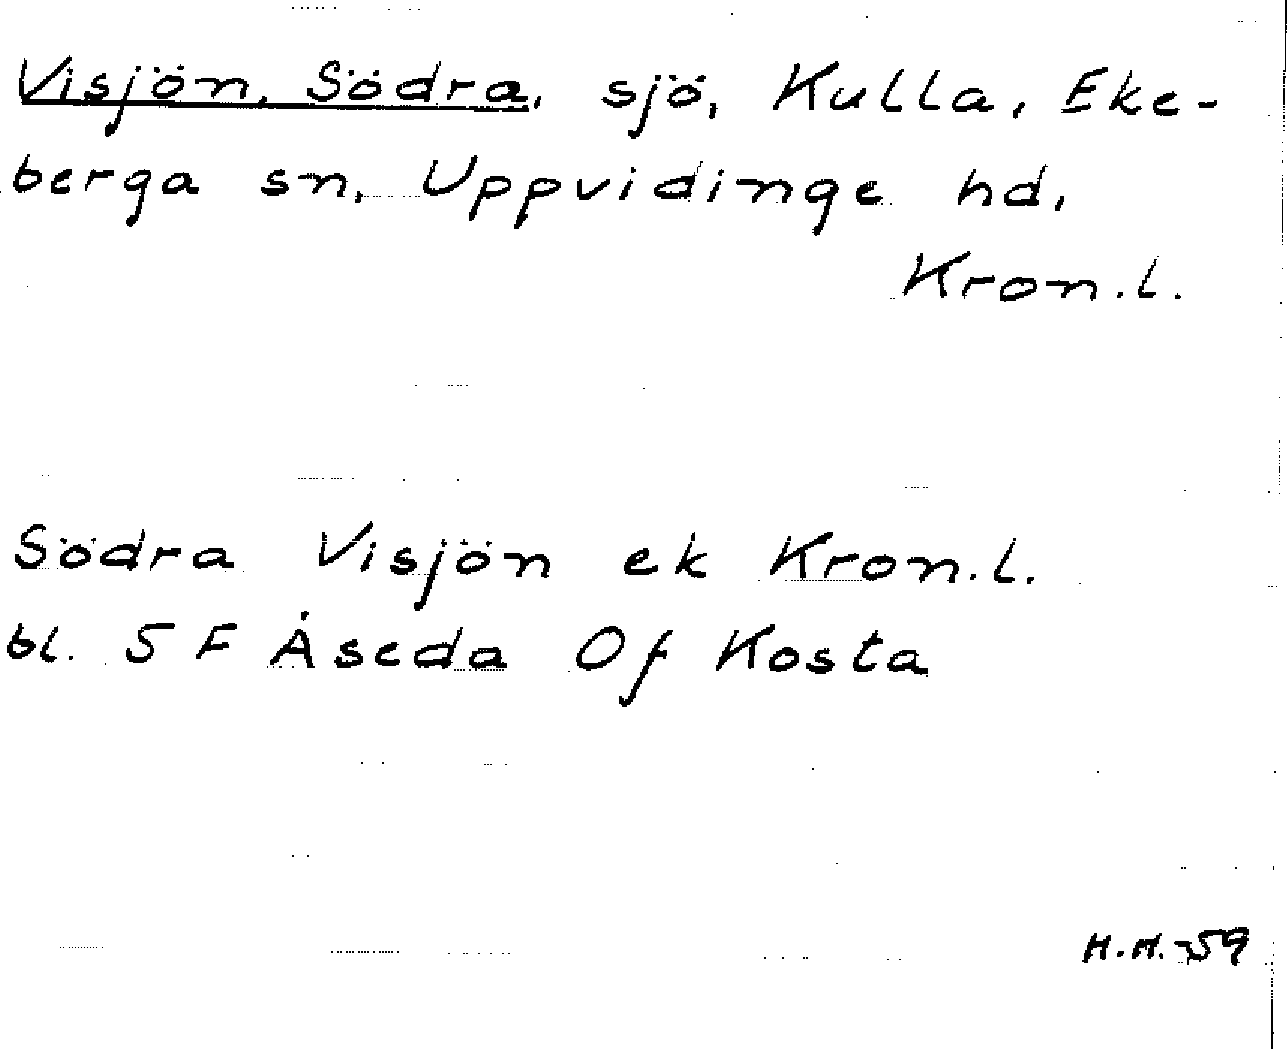 Visjön, Södra, sjö, Kulla, Eke-
berga sn, Uppvidinge hd,
Kron.l.
Södra Visjön ek Kron.l.
bl. 5 F Åseda Of Kosta
H.H. -59